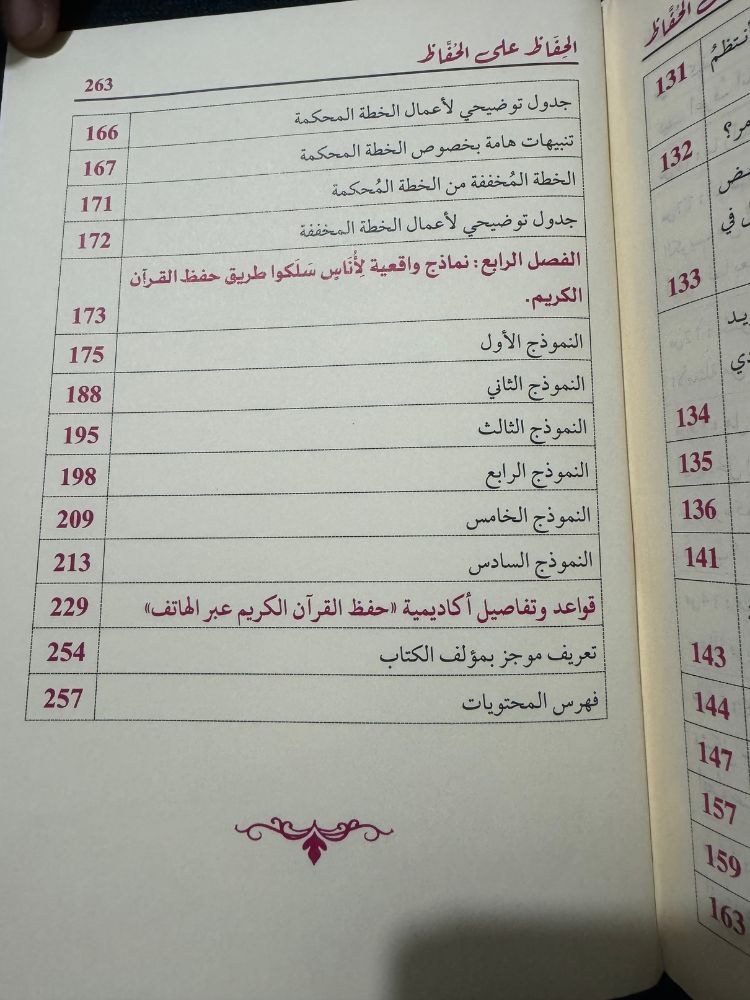 انتظمُ
131
مر؟
132
ض
في
133
يد
دي
134
135
136
141
143
144
147
157
159
163
الحِفَّاظ على الحُفَّاظ
263
جدول توضيحي لأعمال الخطة المحكمة 166
تنبيهات هامة بخصوص الخطة المحكمة 167
الخطة المُخففة من الخطة المُحكمة 171
جدول توضيحي لأعمال الخطة المخففة 172
الفصل الرابع: نماذج واقعية لِأُنَاسٍ سَلَكوا طريق حفظ القرآن
الكريم. 173
النموذج الأول 175
النموذج الثاني 188
النموذج الثالث 195
النموذج الرابع 198
النموذج الخامس 209
النموذج السادس 213
قواعد وتفاصيل أكاديمية «حفظ القرآن الكريم عبر الهاتف» 229
تعريف موجز بمؤلف الكتاب 254
فهرس المحتويات 257